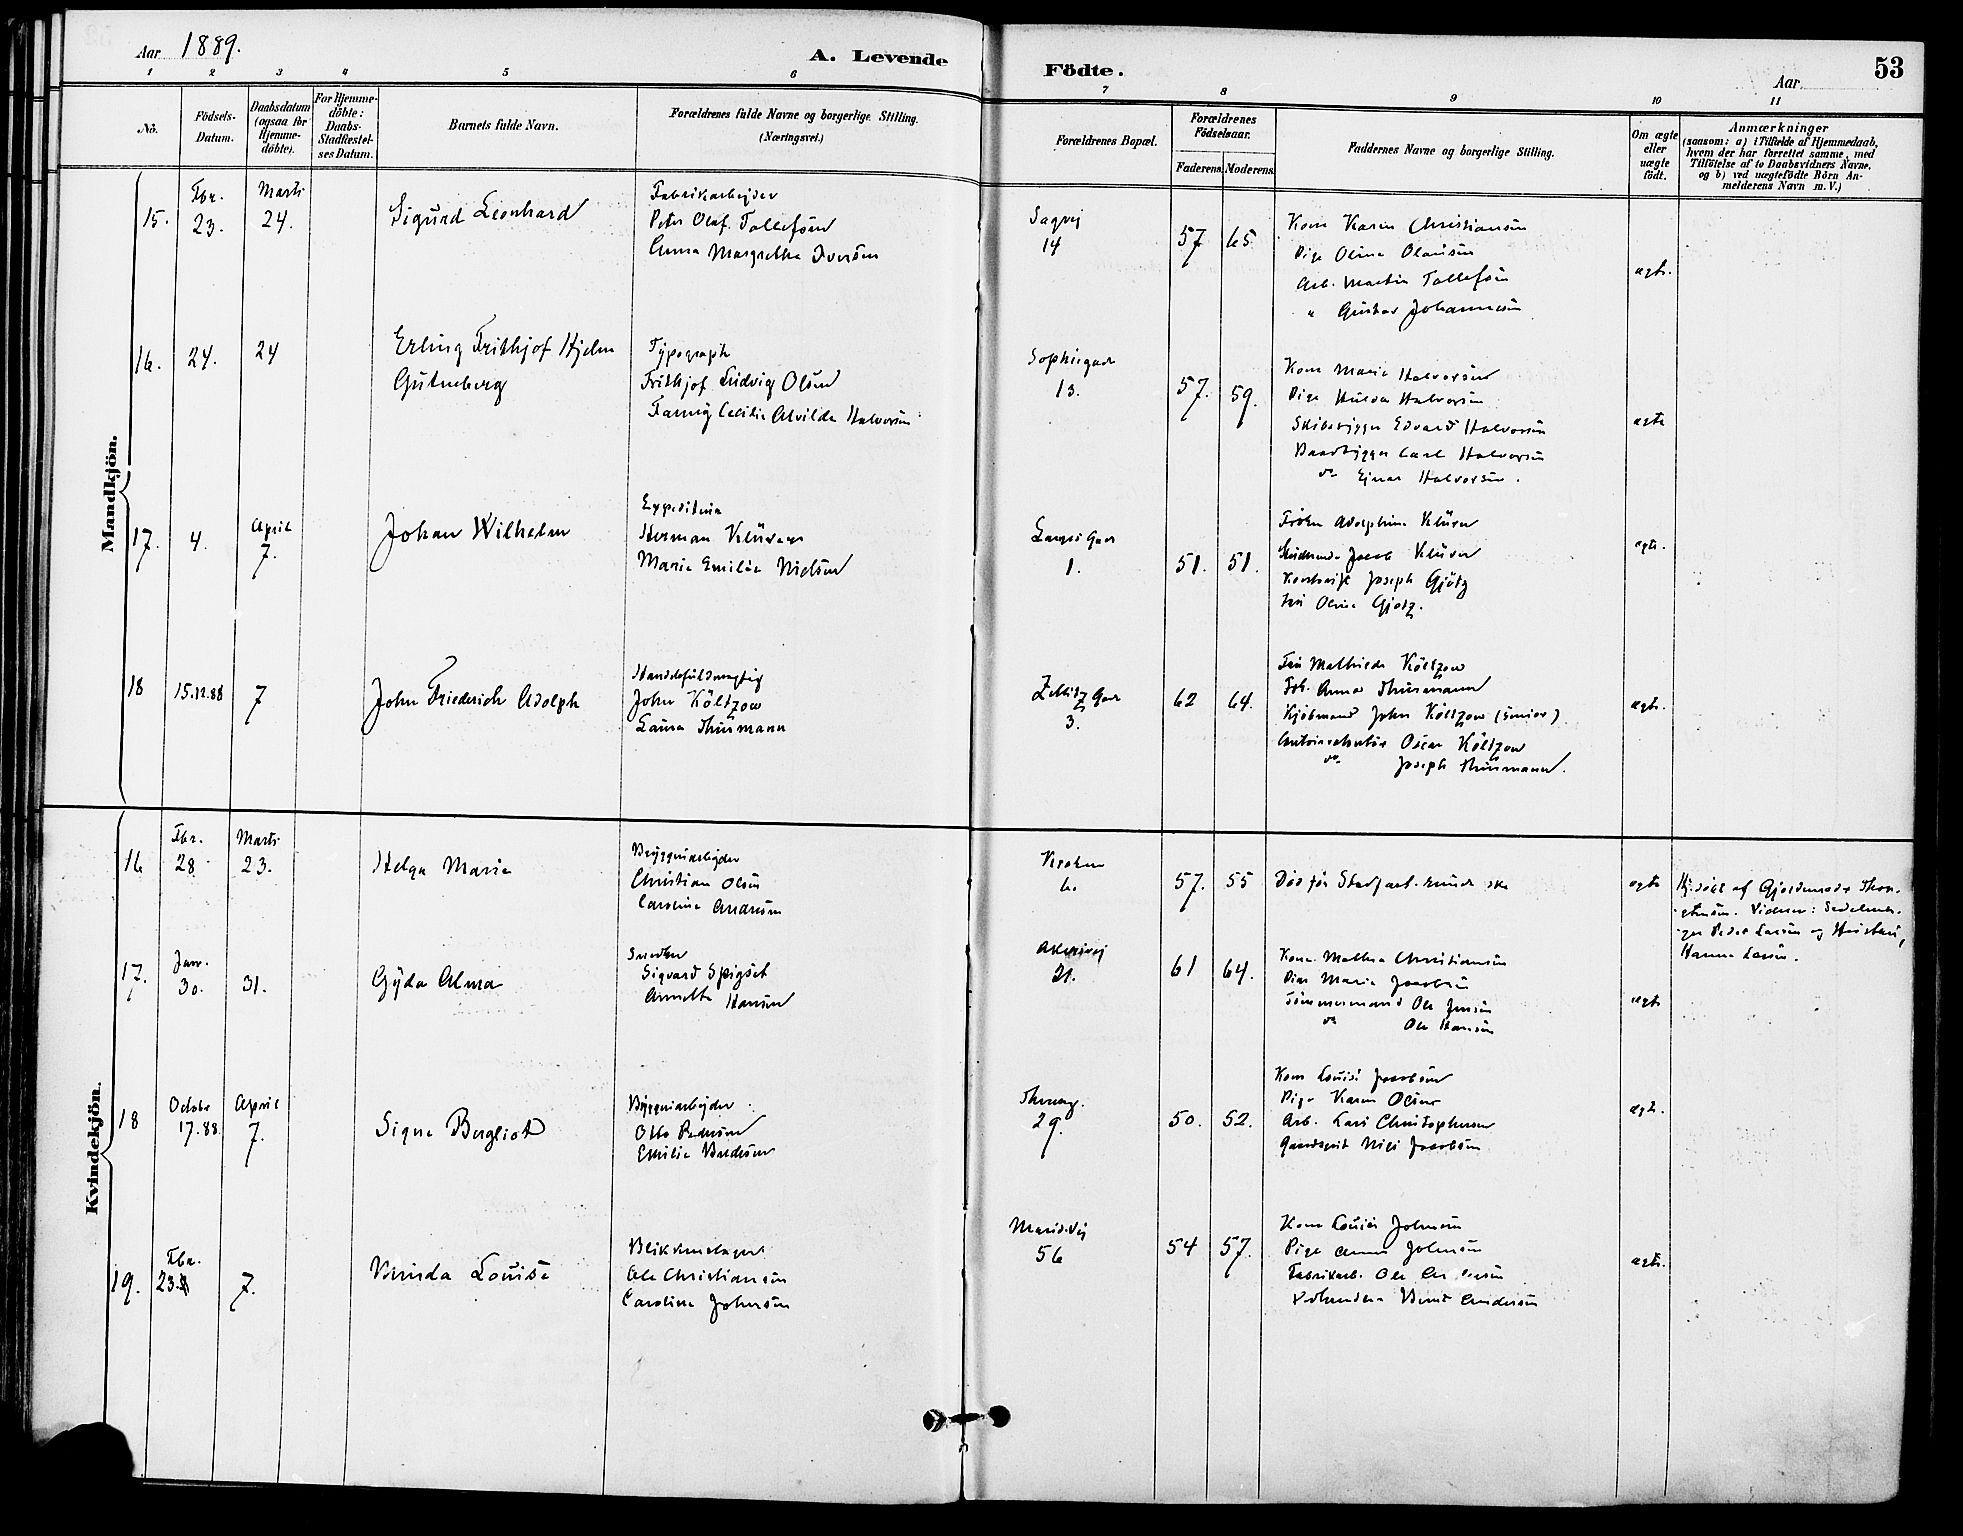 Aar 1889.
A. Levende Födte.
Aar
53
1 2 3 4 5 6 7 8 9 10 11
No.
Födsels-Datum.
Daabsdatum (ogsaa for Hjemme-döbte).
For Hjemme-döbte: Daabs-Stadfæstel-ses Datum.
Barnets fulde Navn.
Forældrenes fulde Navne og borgerlige Stilling. (Næringsvei.)
Forældrenes Bopæl.
Forældrenes Födselsaar.
Faderens. Moderens.
Faddernes Navne og borgerlige Stilling.
Om ægte eller uægte födt.
Anmærkninger
(saasom: a) i Tilfælde af Hjemmedaab,
hvem der har forrettet samme, med
Tilföielse af to Daabsvidners Navne.
og b) ved uægtefödte Börn An-
melderens Navn m.V.)
Mandkjön.
15. Fbr. 23. Marts 24.
Sigurd Leonhard
Fabrikarbejder
Peter Olaf Tollefsen
Anna Margrethe Iversen
Sagvej 14
57 65
Kone Karen Christiansen
Pige Oline Olausen
Arb. Martin Tollefsen
" Gustav Johannesen
ægte.
16. 24. 24
Erling Frithjof Hjelm
Gutenberg
Typograph
Frithjof Ludvig Olsen
Fanny Cecilie Alvilde Halvorsen
Sophiegad 13.
57. 59.
Kone Marie Halvorsen
Pige Hulda Halvorsen
Skibsbygger Edvard Halvorsen
Baadbygger Carl Halvorsen
do Ejnar Halvorsen.
ægte
17. 4. April 7.
Johan Wilhelm
Herman Klüver
Marie Emilie Nielsen
1.
51. 51.
Frøken Adolphine Klüver
Jacob Klüver
Joseph Gjötz
Fru Oline Gjötz.
ægte.
18 15.12.88 7
John Friederich Adolph
Handelsfuldmægtig
John Költzow
Laura Thurmann
Zetlitz Gad 3.
62 64.
Fru Mathilde Költzow
Frk. Anna Thurmann
Kjöbmand John Költzow (senior)
Oscar Költzow
do. Joseph Thurmann.
ægte.
Kvindekjön.
16 Fbr. 28. Marts 23.
Helga Marie
Bryggeriarbejder
Christian Olsen
Caroline Andersen
6.
57. 55
Död för Stadfæst. kunde ske
ægte
Hj.döbt af Gjordemoder Thor-
Peder Larsen og Hustru,
Hanna Larsen.
17. Jan. 30. 31.
Gyda Alma
Snedker
Sigvard Spigset
Annette Hansen
Akersvej 21.
61 64.
Kone Mathea Christiansen
Pige Marie Jacobsen
Tömmermand Ole Jensen
do Ole Hansen
ægte
18 Octobr 17.88. April 7.
Signe Bergliot
Bryggeriarbejder
Otto Pedersen
Emilie Pedersen
29.
50. 52.
Kone Louise Jacobsen
Pige Karen Olsen
Arb. Lars Christophersen
Gaardsgut Nils Jacobsen
ægte.
19. Fbr. 23. 7.
Louise
Ole Christiansen
Caroline Johnsen
Marids.Vej 56
54 57.
Kone Louise Johnsen
Pige Anna Johnsen
Fabrikarb. Ole Andersen
Bernt Andersen
ægte.